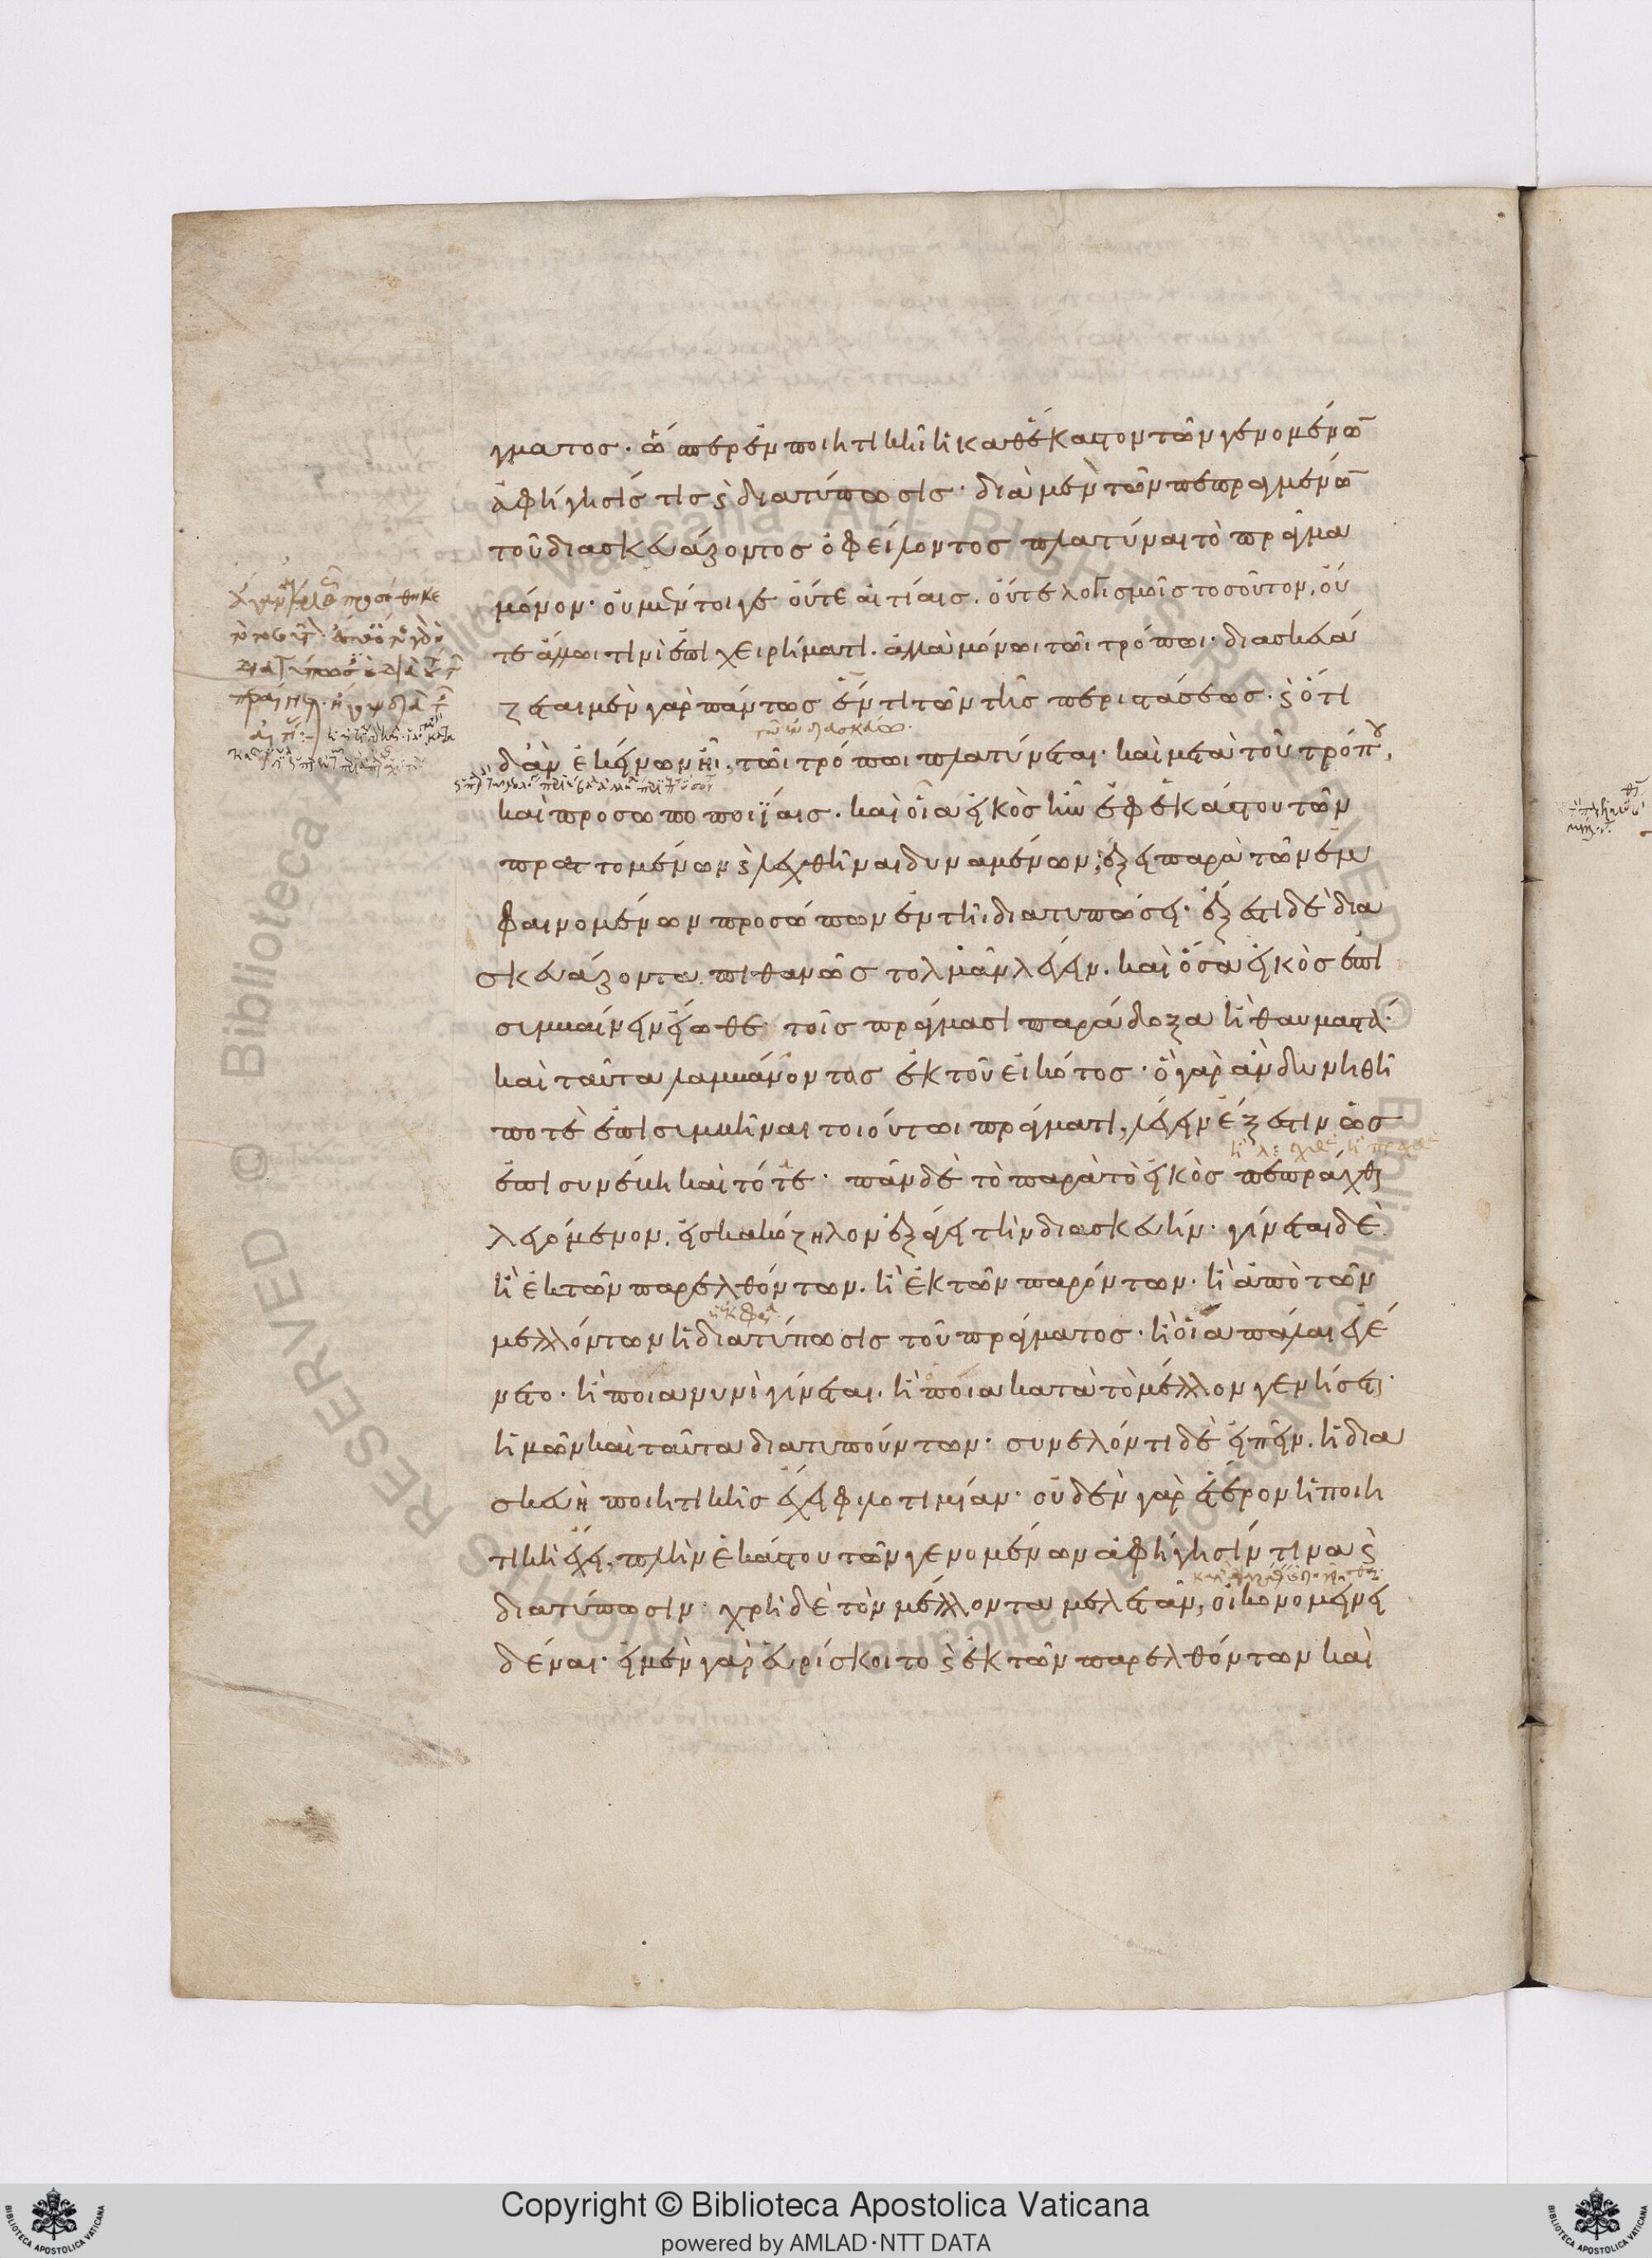 γματος· ὥσπερ ἐν ποιητικῇ ἡ καθέκαστον τῶν γενομένων
ἀφήγησίς τις καὶ διατύπωσις· διὰ μὲν τῶν πεπραγμένων
τοῦ διασκευάζοντος ὀφείλοντος πλατύναι τὸ πρᾶγμα
μόνον· οὐ μέν τοι γε οὔτε αἰτίαις. οὔτε λογισμοῖς τοσοῦτον, οὔ
τε ἄλλωι τινὶ ἐπιχειρήματι. ἀλλὰ μόνωι τῶι τρόπωι· διασκευά
ζεται μὲν γὰρ πάντως ἕν τι τῶν τῆς περιστάσεως· καὶ ὅτι
δἂν ἐκείνων ἦι, τῶι τρόπωι πλατύνεται· καὶ μετὰ τοῦ τρόπου,
καὶ προσωποποιΐαις. καὶ οἷα εἰκὸς ἦν ἐφ ἑκάστου τῶν
πραττομένων καὶ λεχθῆναι δυναμένων, ἕξει παρὰ τῶν ἐμ
φαινομένων προσώπων ἐν τῆι διατυπώσει· ἔξεστι δὲ δια
σκευάζοντα πιθανῶς τολμᾶν λέγειν. καὶ ὅσα εἰκὸς ἐπι
συμβαίνειν εἴωθε τοῖς πράγμασι παράδοξα ἢ θαυμαστὰ·
καὶ ταῦτα λαμβάνοντας ἐκ τοῦ εἰκότος· ὃ γὰρ ἂν δυνηθῆ
ποτὲ ἐπισυμβῆναι τοιούτωι πράγματι, λέγειν ἔξεστιν ὡς
ἐπισυνέβη καὶ τότε· πᾶν δὲ τὸ παρὰ τὸ εἰκὸς πεπράχθαι
λεγόμενον, εἰς κακόζηλον ἐξάγει τὴν διασκευήν· γίνεται δὲ
ἢ ἐκ τῶν παρελθόντων. ἢ ἐκ τῶν παρόντων. ἢ ἀπὸ τῶν
μελλόντων ἡ διατύπωσις τοῦ πράγματος· ἢ οἷα πάλαι ἐγέ
νετο. ἢ ποῖα νυνὶ γίνεται. ἢ ποῖα κατὰ τὸ μέλλον γενήσεται·
ἡμῶν καὶ ταῦτα διατυπούντων· συνελόντι δὲ εἰπεῖν. ἡ δια
σκευὴ ποιητικῆς ἔχει φιλοτιμίαν· οὐδὲν γὰρ ἕτερον ἡ ποιη
τικὴ ἔχει. πλὴν ἑκάστου τῶν γενομένων ἀφήγησίν τινα καὶ
διατύπωσιν· χρὴ δὲ τὸν μέλλοντα μελετᾶν, οἰκονομεῖν εἰ
δέναι· εἰ μὲν γὰρ εὑρίσκοιτο καὶ ἐκ τῶν παρελθόντων καὶ
Copyright © Biblioteca Apostolica Vaticana
powered by AMLAD·NTT DATA